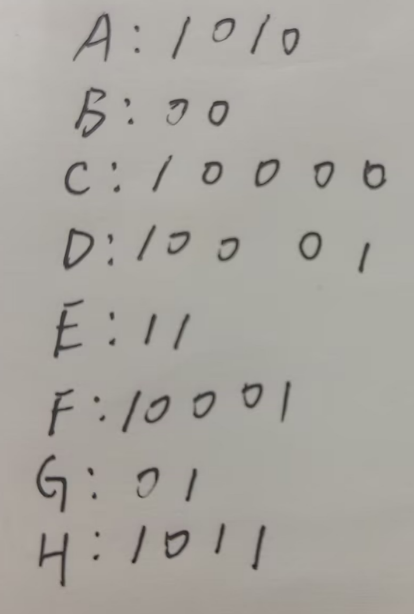 A: 1010
B: 00
C: 10000
D: 10001
E: 11
F: 10001
G: 01
H: 1011